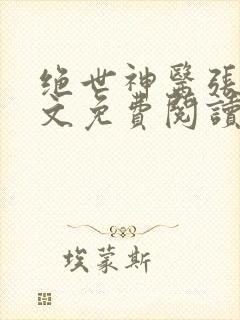 绝世神醫張
文免費閱讀
埃蒙斯